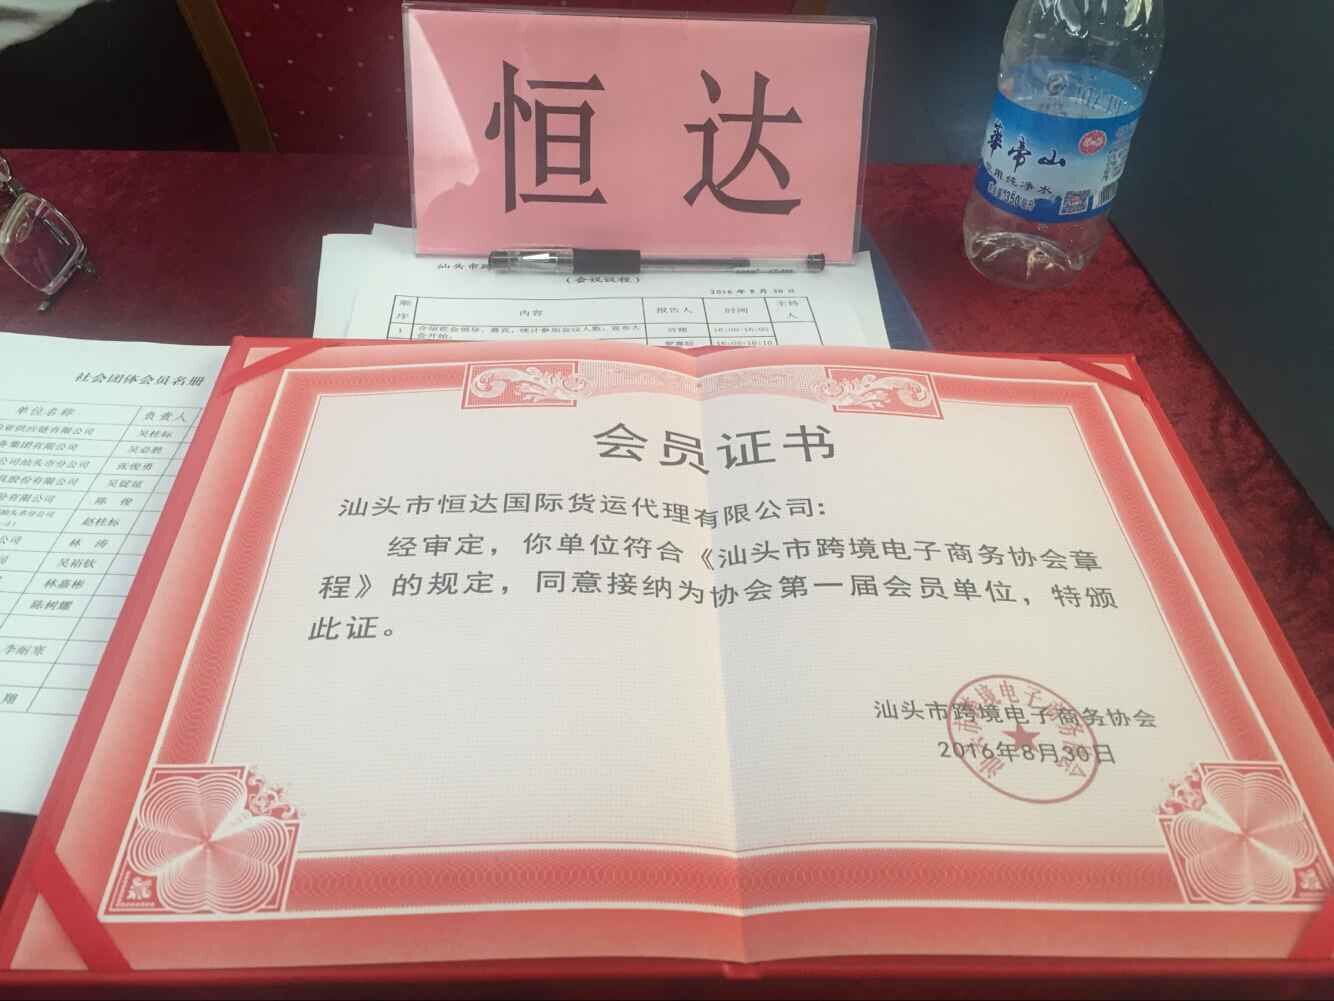 恒达
華帝山
用纯净水
汕头市跨
(会议议程)
2016年8月30日
顺序 内容 报告人 时间 主持人
1
16:00-16:05
16:05-16:10
社会团体会员名册
单位名称 负责人
供应链有限公司 吴桂标
务集团有限公司 吴必胜
公司汕头市分公司 张俊勇
股份有限公司 吴锭延
份有限公司 陈俊
赵桂标
公司 林涛
司 吴裕钦
林嘉彬
陈树耀
李耐寒
翔
会员证书
汕头市恒达国际货运代理有限公司:
经审定，你单位符合《汕头市跨境电子商务协会章
程》的规定，同意接纳为协会第一届会员单位，特颁
此证。
汕头市跨境电子商务协会
2016年8月30日
汕头市跨境电子商务协会